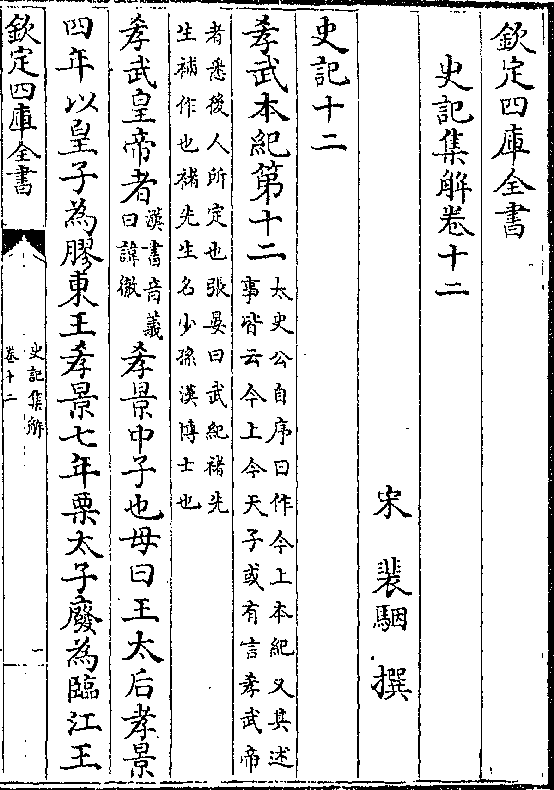 欽定四庫全書
史記集解卷十二
宋 裴駰 撰
史記十二
孝武本紀第十二太史公自序曰作今上本紀又其述事皆云今上今天子或有言孝武帝
者悉後人所定也張晏曰武紀褚先生補作也補先生名少孫漢博士也
孝武皇帝者漢書音義曰諱徹孝景中子也母曰王太后孝景
四年以皇子為膠東王孝景七年栗太子廢為臨江王
欽定四庫全書
史記集解
卷十二
一